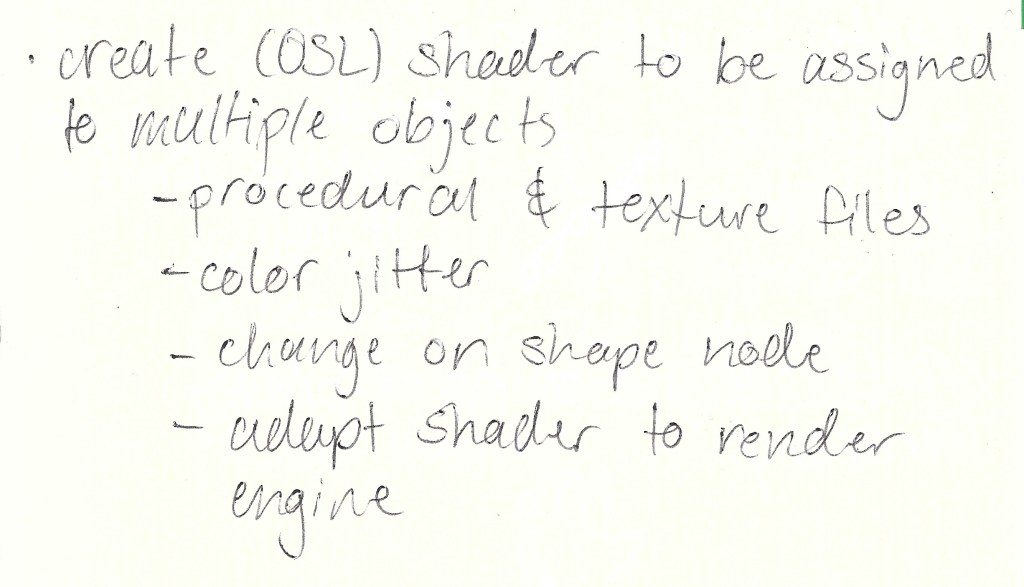 · create (OSL) shader to be assigned
to multiple objects
- procedural & texture files
- color jitter
- change on shape node
- adapt shader to render
engine